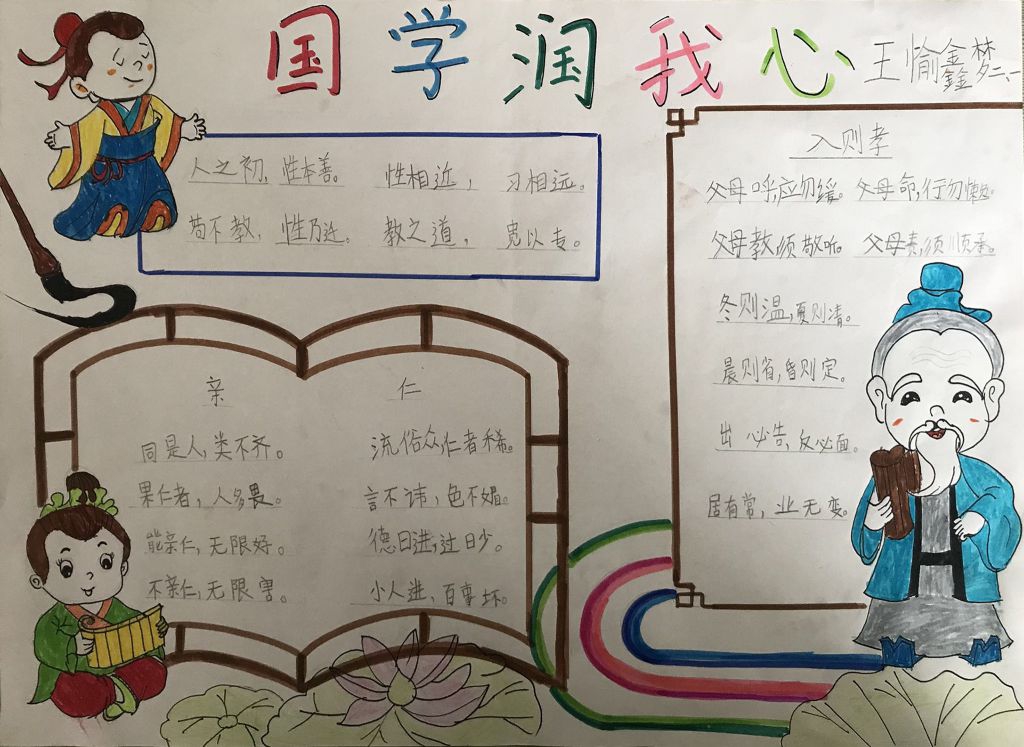 国学润我心
王愉鑫梦二、一
人之初，性本善。 性相近， 习相远。
苟不教，性乃迁。 教之道， 贵以专。
亲 仁
同是人，类不齐。 流俗众，仁者稀。
果仁者，人多畏。 言不讳，色不媚。
能亲仁，无限好。 德日进，过日少。
不亲仁，无限害。 小人进，百事坏。
入则孝
父母呼，应勿缓。 父母命，行勿懒。
父母教，须敬听。 父母责，须顺承。
冬则温，夏则凊。
晨则省，昏则定。
出必告，反必面。
居有常，业无变。